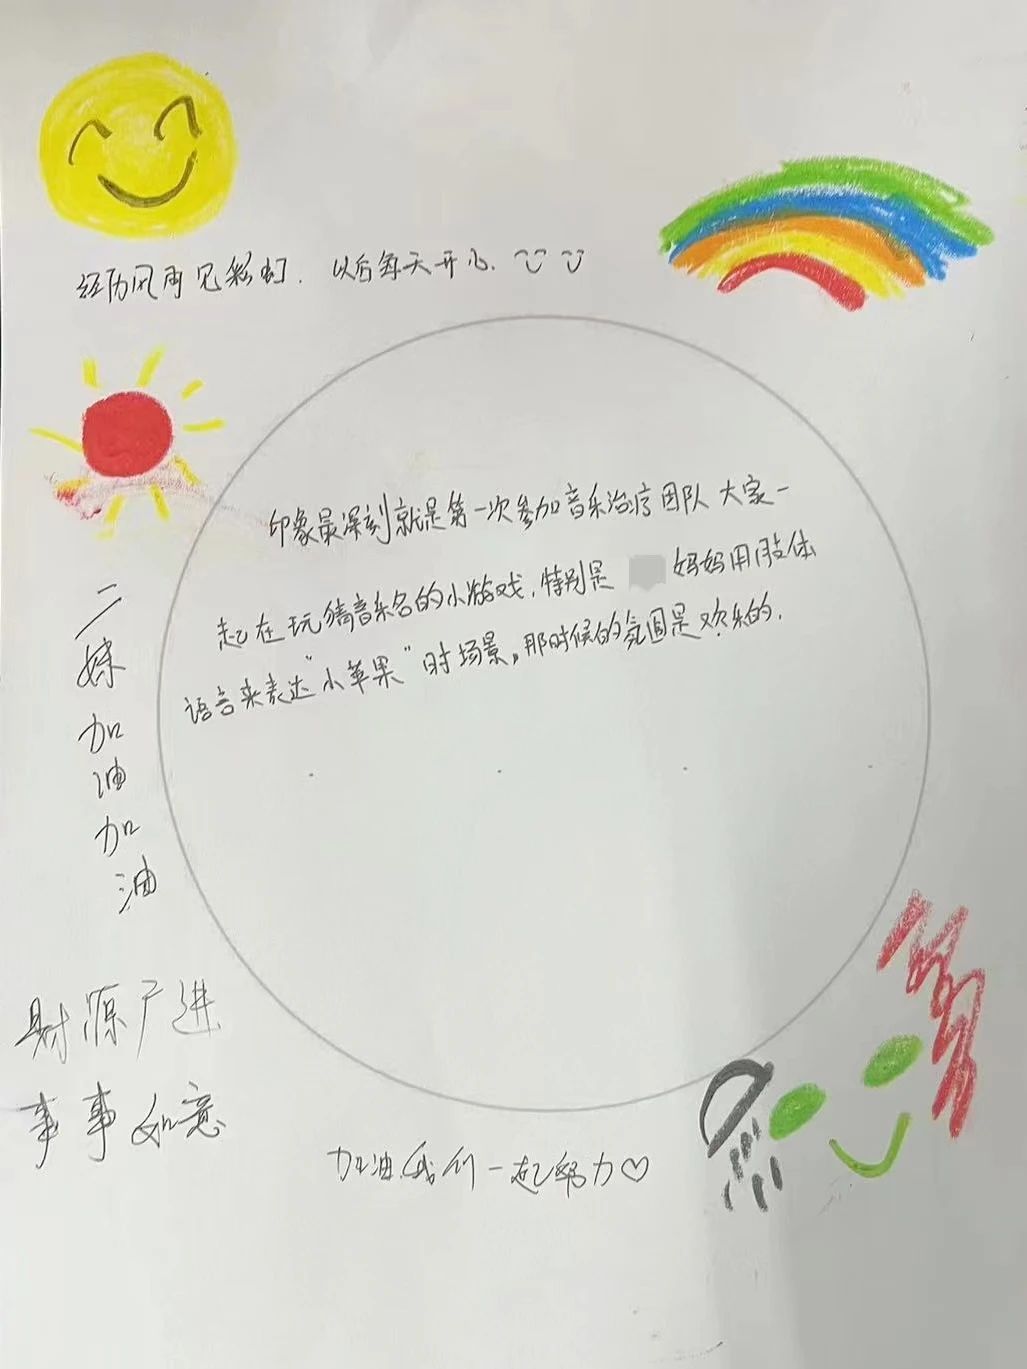 经历风雨见彩虹. 以后每天开心.
印象最深刻就是第一次参加音乐治疗团队大家一
起在玩猜音乐名的小游戏,特别是 妈妈用肢体
语言来表达"小苹果"时场景。那时候的氛围是欢乐的.
二妹加油加油
财源广进
事事如意
加油.我们一起努力♡